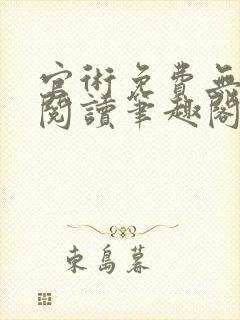 官術免費無
閱讀筆趣閣
東島暮